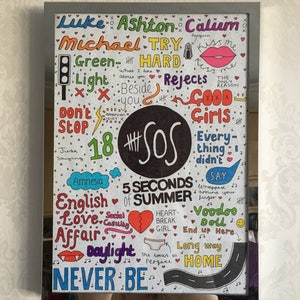 Luke Ashton Calum
Michael TRY
HARD
Green-
Light
Rejects
Kiss me
Kiss me
Beside
you
THE
REASON
DON'T
STOP
GOOD
Girls
18
SOS
Every-
thing I
didn't
SAY
Amnesia
5 SECONDS
OF
SUMMER
Wrapped
around your
finger
English
Love
Affair
Social
Casualty
HEART-
BREAK
GIRL
Voodoo
Doll
End up Here
Daylight
Long way
HOME
NEVER BE